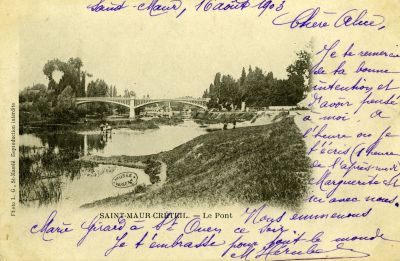 Saint-Maur, 16 août 1903
Chère Aline,
Je te remercie
de ta bonne
intention et
d'avoir pensé
à moi. à
l'heure où je
t'écris (1 heure
de l'après-midi
Marguerite est
ici avec nous.
Nous emmenons
Marie Girard à St Ouen ce soir
Je t'embrasse pour tout le monde
SAINT-MAUR-CRÉTEIL. — Le Pont
Photo L. G., St-Mandé. Reproduction interdite